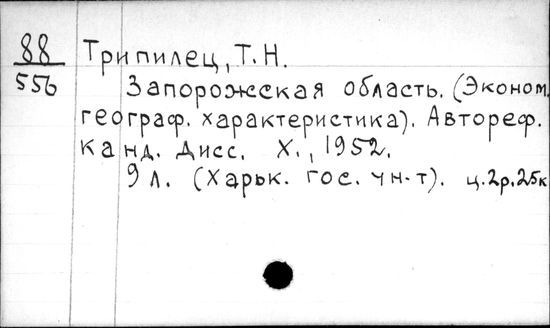 88
556
Трипилец, Т.Н.
Запорожская область. (Эконом.
географ. характеристика). Автореф.
канд. дисс. Х., 1952.
9 л. (Харьк. гос. ун-т). ц.2р.25к